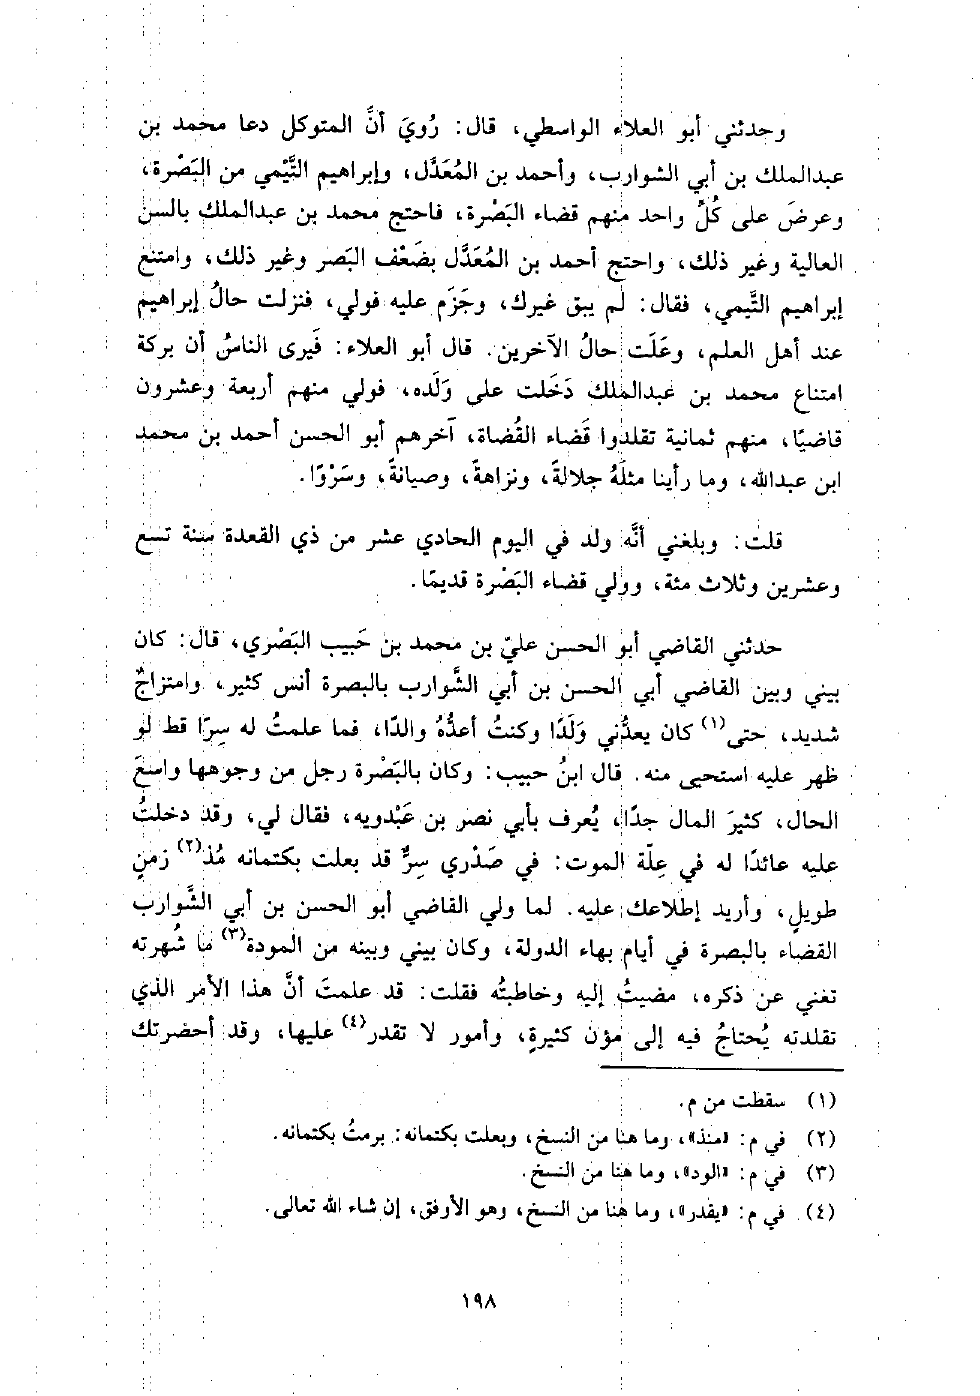 وحدثني أبو العلاء الواسطي، قال: رُويَ أنَّ المتوكل دعا محمد بن
عبدالملك بن أبي الشوارب، وأحمد بن المُعَدَّل، وإبراهيم التَّيْمي من البَصْرة،
وعرضَ على كُلِّ واحد منهم قضاء البَصْرة، فاحتج محمد بن عبدالملك بالسن
العالية وغير ذلك، واحتج أحمد بن المُعَدَّل بضَعْف البَصر وغير ذلك، وامتنع
إبراهيم التَّيمي، فقال: لم يبق غيرك، وجَزَم عليه فولي، فنزلت حالُ إبراهيم
عند أهل العلم، وعَلَت حالُ الآخرين. قال أبو العلاء: فَيرى الناسُ أن بركة
امتناع محمد بن عبدالملك دَخَلت على وَلَده، فولي منهم أربعة وعشرون
قاضيًا، منهم ثمانية تقلدوا قَضاء القُضاة، آخرهم أبو الحسن أحمد بن محمد
ابن عبدالله، وما رأينا مثلَهُ جلالةً، ونزاهةً، وصيانةً، وسَرْوًا.
قلت: وبلغني أنَّه ولد في اليوم الحادي عشر من ذي القعدة سنة تسع
وعشرين وثلاث مئة، وولي قضاء البَصْرة قديمًا.
حدثني القاضي أبو الحسن عليّ بن محمد بن حَبيب البَصْري، قال: كان
بيني وبين القاضي أبي الحسن بن أبي الشَّوارب بالبصرة أنس كثير، وامتزاجٌ
شديد، حتى(١) كان يعدُّني وَلَدًا وكنتُ أعدُّهُ والدًا، فما علمتُ له سِرًا قط لو
ظهر عليه استحيى منه. قال ابنُ حبيب: وكان بالبَصْرة رجل من وجوهها واسعَ
الحال، كثيرَ المال جدًا، يُعرف بأبي نصر بن عَبْدويه، فقال لي، وقد دخلتُ
عليه عائدًا له في عِلّة الموت: في صَدْري سِرٌّ قد بعلت بكتمانه مُذ(٢) زمنٍ
طويلٍ، وأريد إطلاعك عليه. لما ولي القاضي أبو الحسن بن أبي الشَّوارب
القضاء بالبصرة في أيام بهاء الدولة، وكان بيني وبينه من المودة(٣) ما شُهرته
تغني عن ذكره، مضيتُ إليه وخاطبتُه فقلت: قد علمتَ أنَّ هذا الأمر الذي
تقلدته يُحتاجُ فيه إلى مؤن كثيرةٍ، وأمور لا تقدر(٤) عليها، وقد أحضرتك
(١) سقطت من م.
(٢) في م: «منذ»، وما هنا من النسخ، وبعلت بكتمانه: برمتُ بكتمانه.
(٣) في م: «الود»، وما هنا من النسخ.
(٤) في م: «يقدر»، وما هنا من النسخ، وهو الأوفق، إن شاء الله تعالى.
١٩٨